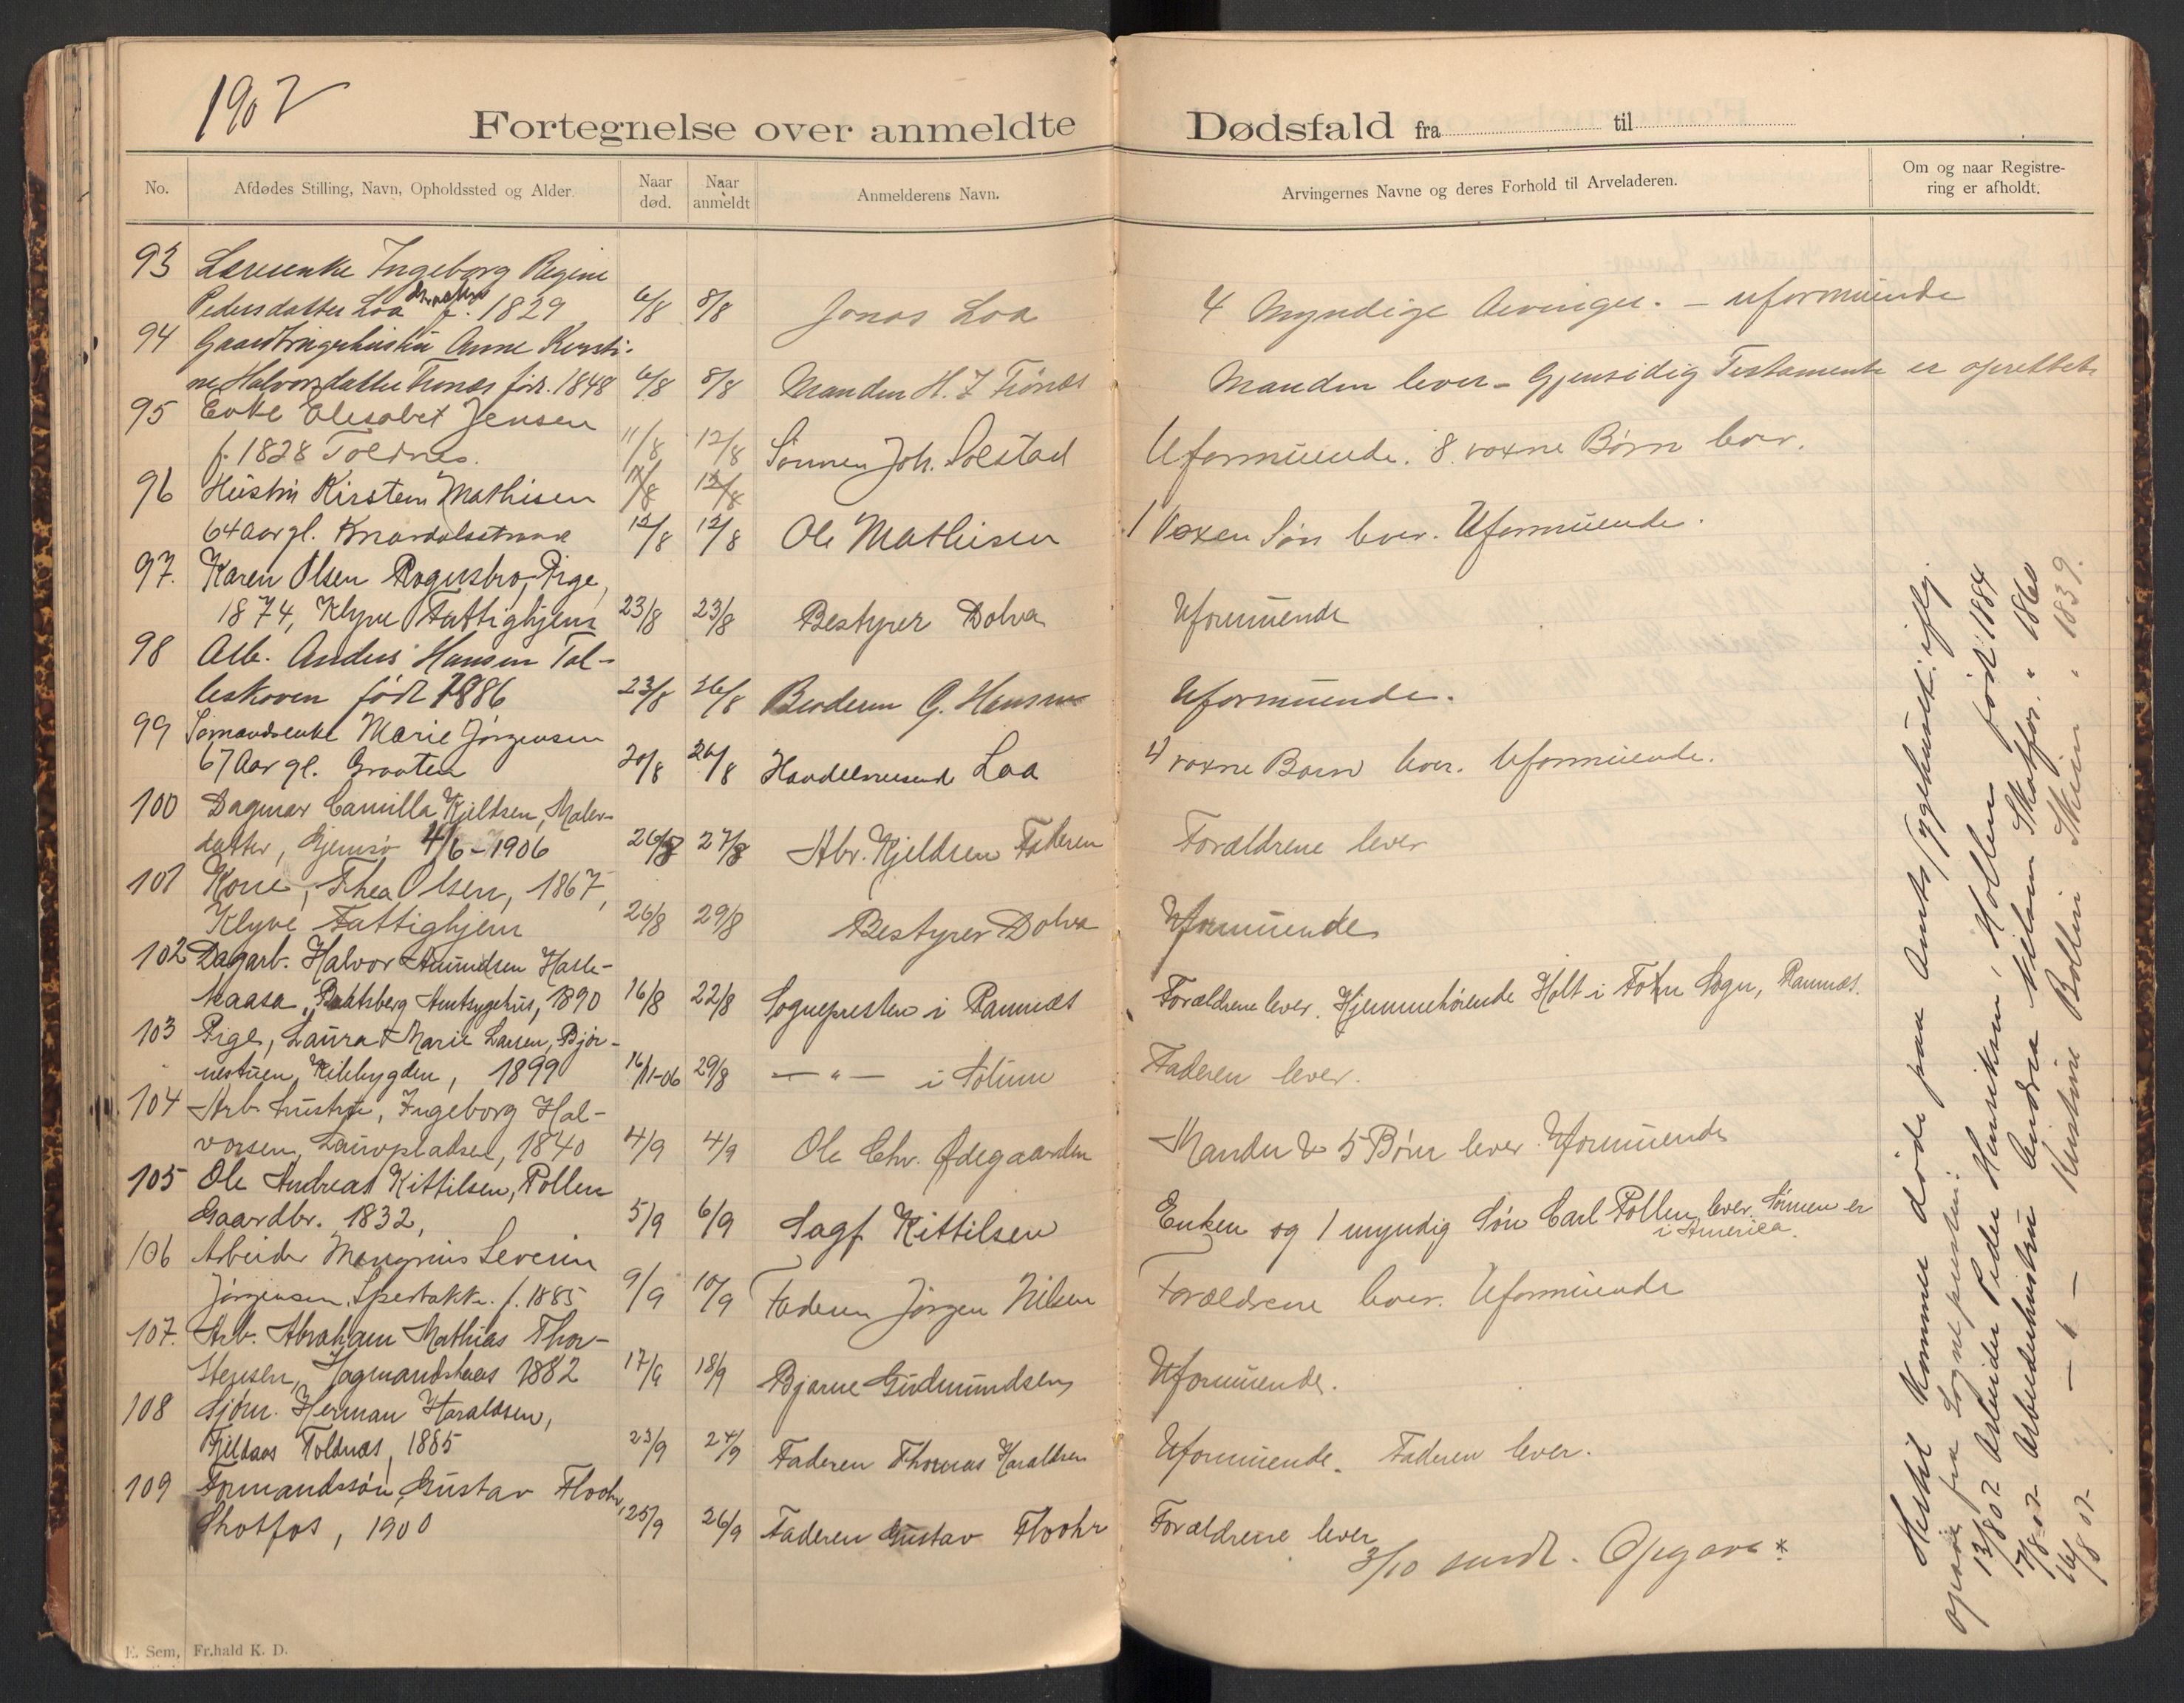 1907
Fortegnelse over anmeldte Dødsfald fra til
No. Afdødes Stilling, Navn, Opholdssted og Alder. Naar død. Naar anmeldt Anmelderens Navn. Arvingernes Navne og deres Forhold til Arveladeren. Om og naar Registrering er afholdt.
93 Lærerenke Ingeborg Regine
Pedersdatter Loa f. 1829 6/8 8/8 Jonas Loa 4 Myndige Arvinger. – uformuende
94 Gaardbrugerhustru Anne Kersti-
ne Halvorsdatter Trones født 1848 6/8 8/8 Manden H. J Trönæs Manden lever – Gjensidig Testamente er oprettet
95 Enke Elisabet Jensen
f. 1828 Toldnes. 11/8 12/8 Sönnen Joh. Solstad Uformuende. 8 voxne Börn lever.
96 Hustru Kirsten Mathisen 11/8 12/8
64 Aar gl. Knardalsstrand 12/8 12/8 Ole Mathisen 1 Voxen Sön lever. Uformuende.
97. Karen Olsen Rognsbro, Pige,
1874, Klyve Fattighjem 23/8 23/8 Bestyrer Dolva Uformuende
98 Arb. Anders Hansen Tol-
leskoven født 1886 23/8 26/8 Broderen G. Hansen Uformuende.
99 Sömandsenke Marie Jörgensen
67 Aar gl. Graaten 20/8 26/8 Handelsmand Loa 4 voxne Barn lever. Uformuende.
100 Dagmar Camilla Kjeldsen, Maler-
datter, Gjemsø 4/6 – 1906 26/8 27/8 Abr. Kjeldsen Faderen Forældrene lever
101 Kone, Thea Olsen, 1867,
Klyve Fattighjem 26/8 29/8 Bestyrer Dolva Uformuende
102 Dagarb. Halvor Amundsen Hasle-
kaasa, Bratsberg Amtsygehus, 1890 16/8 22/8 Sognepresten i Rannæs Forældrene lever. Hjemmehørende Holt i Sogn, Rannæs.
103 Pige, Laura Marie Larsen, Bjør-
nestuen, Kilebygden, 1899 16/11-06 29/8 — " — i Solum Faderen lever.
104 Arb. hustru, Ingeborg Hal-
vorsen, Laurpladsen, 1840 4/9 4/9 Ole Chr. Ødegaarden Manden & 5 Børn lever. Uformuende
105 Ole Andreas Kittilsen, Pollen
Gaardbr. 1832, 5/9 6/9 Sagf. Kittilsen Enken og 1 myndig Søn Carl Pollen lever. Sønnen er
i America.
106 Arbeider Mangnus Severin
Jørgensen, f. 1885 9/9 10/9 Faderen Jørgen Nilsen Forældrene lever. Uformuende
107. Arb. Abraham Mathias Thor-
stensen, Hagmandshaas 1882 17/9 18/9 Bjarne Gudmundsen Uformuende.
108 Sjøm. Herman Haraldsen,
Kjeldaas Toldnæs, 1885 23/9 24/9 Faderen Thomas Haraldsen Uformuende. Faderen lever.
109 Formandssøn Gustav Floohr,
Skotfos, 1900 25/9 26/9 Faderen Gustav Floohr Forældrene lever
3/10 sendt. Opgave *
Hertil kommer døde paa Amts sygehuset iflg.
opgave fra Sognepresten:
13/8 07 Arbeider Peder Henriksen, Hollen født 1884
17/8 07 Arbeiderhustru Andrea Nilsen Skotfos. " 1860
16/8 07 — " — Kirstine Skien " 1839.
E. Sem, Fr.hald K. D.